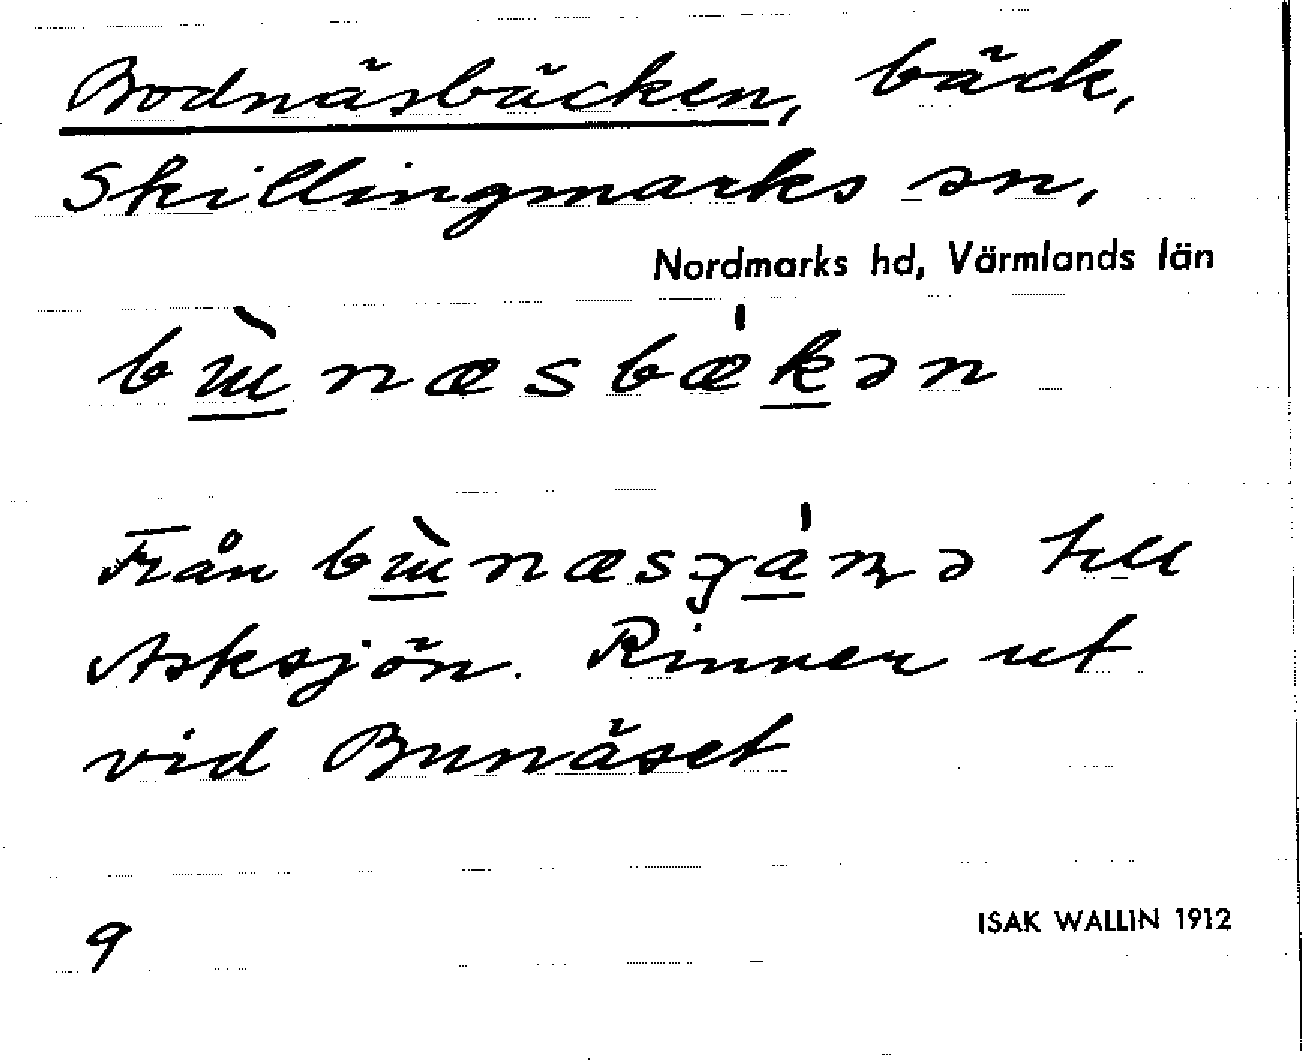 Bodnäsbäcken, bäck,
Skillingmarks sn,
Nordmarks hd, Värmlands län
Från till
Asksjön. Rinner ut
vid Bunäset
9
ISAK WALLIN 1912